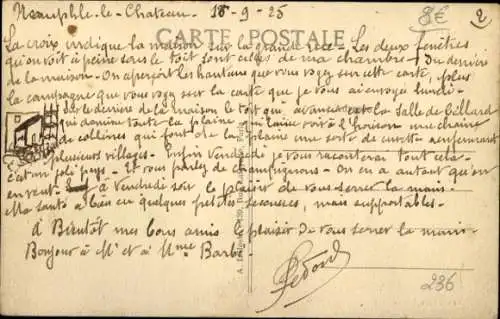 Neauphle-le-Chateau 18-9-25
8€ 2
CARTE POSTALE
La croix indique la maison sur la grande rue - Les deux fenêtres
qu'on voit à peine sous le toit sont celles de ma chambre - Du derrière
de la maison - On aperçoit les hauteurs que vous voyez sur cette carte, plus
la campagne que vous voyez sur la carte que je vous ai envoyé lundi -
Sur le derrière de la maison le toit qui avance est la Salle de Billard
qui domine toute la plaine qui laisse voir à l'horizon une chaine
de collines qui font de la plaine une sorte de cuvette renfermant
plusieurs villages - Enfin Vendredi je vous raconterai tout cela -
c'est un joli pays - Et vous parlez de champignons - On en a autant qu'on
en veut - à Vendredi soir le plaisir de vous serrer la main -
Ma santé a bien eu quelques petites secousses, mais supportables -
à Bientôt mes bons amis le plaisir de vous serrer la main
Bonjour à Mr et à Mme Barbe
236